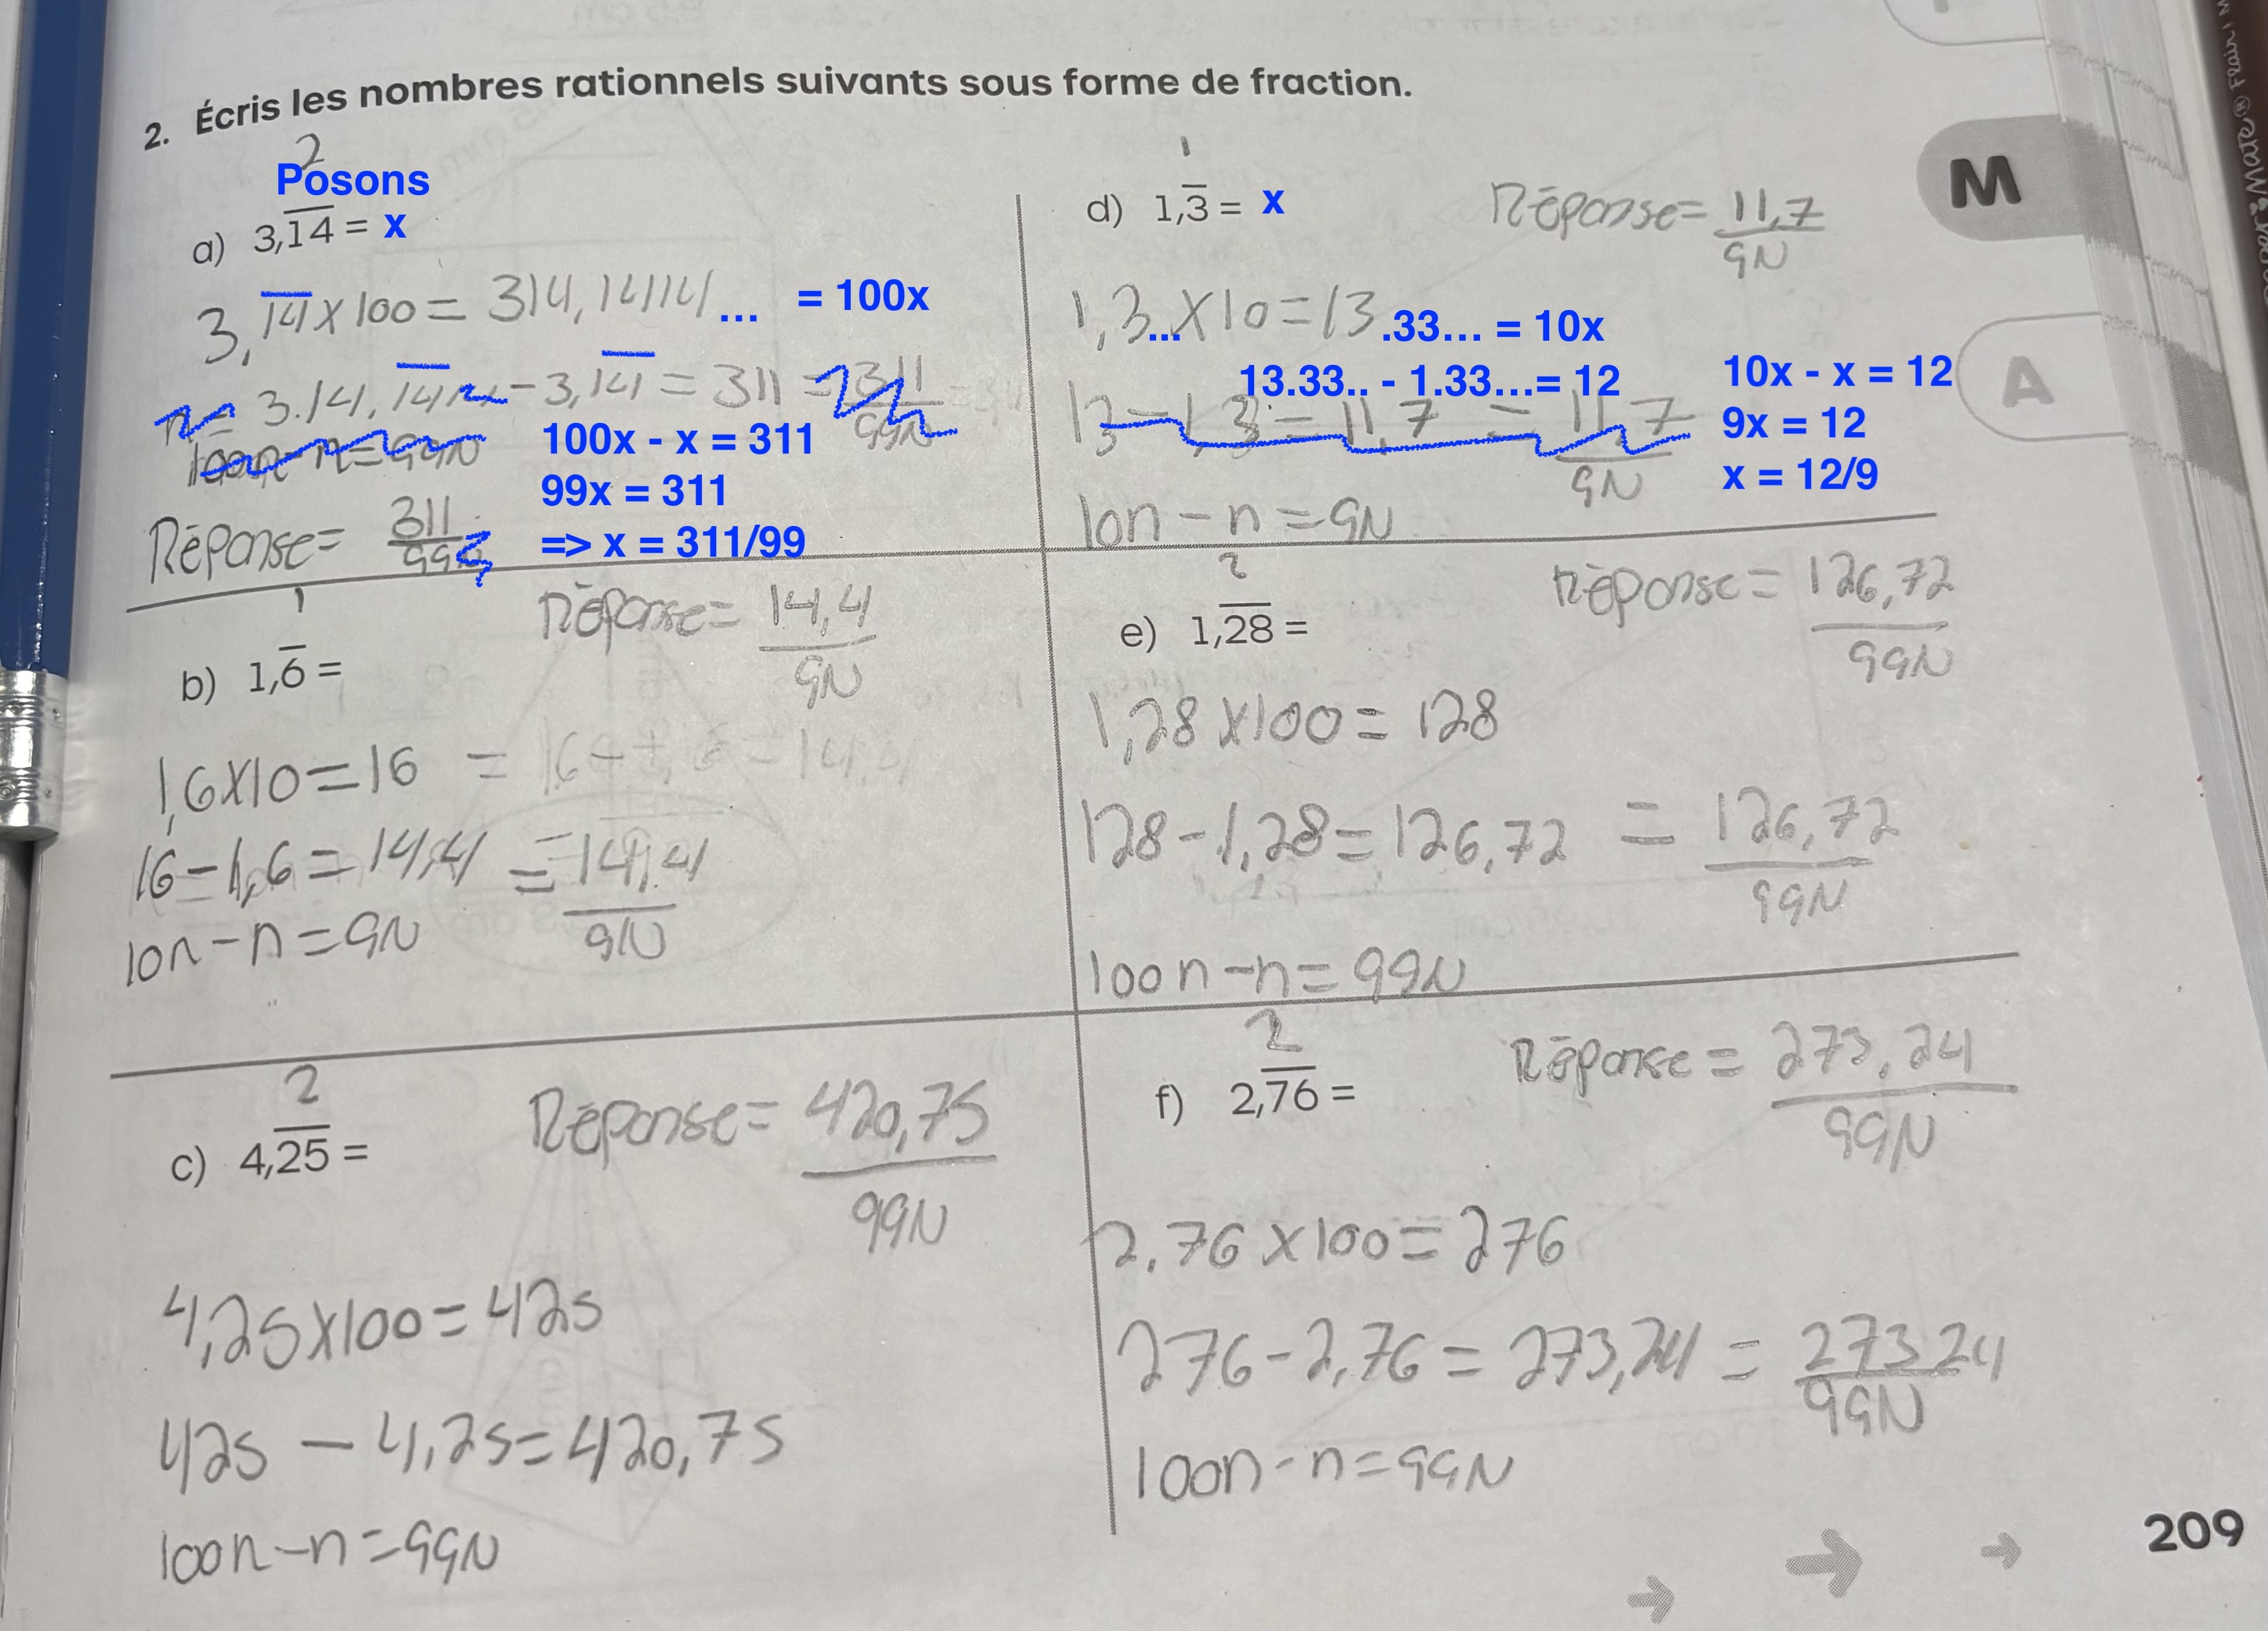 2. Écris les nombres rationnels suivants sous forme de fraction.
2
Posons
a) 3,1̅4̅ = x
3,1̅4̅ x 100 = 314,141414... = 100x
3.14,1̅4̅ - 3,1̅4̅ = 311 = 311/99N
100n - n = 99N
100x - x = 311
99x = 311
=> x = 311/99
Réponse = 311/99
1
b) 1,6̅ =
Réponse = 14,4/9N
1,6x10 = 16 = 16 - 1,6 = 14,4
16 - 1,6 = 14,4 = 14,4/9N
10n - n = 9N
2
c) 4,2̅5̅ =
Réponse = 420,75/99N
4,25x100 = 425
425 - 4,25 = 420,75
100n - n = 99N
1
d) 1,3̅ = x
Réponse = 11,7/9N
1,3...x10 = 13.33... = 10x
13.33.. - 1.33...= 12
13 - 1,3 = 11,7 = 11,7/9N
10n - n = 9N
10x - x = 12
9x = 12
x = 12/9
2
e) 1,2̅8̅ =
Réponse = 126,72/99N
1,28x100 = 128
128 - 1,28 = 126,72 = 126,72/99N
100n - n = 99N
2
f) 2,7̅6̅ =
Réponse = 273,24/99N
2,76 x100 = 276
276 - 2,76 = 273,24 = 273 24/99N
100n - n = 99N
M
A
209